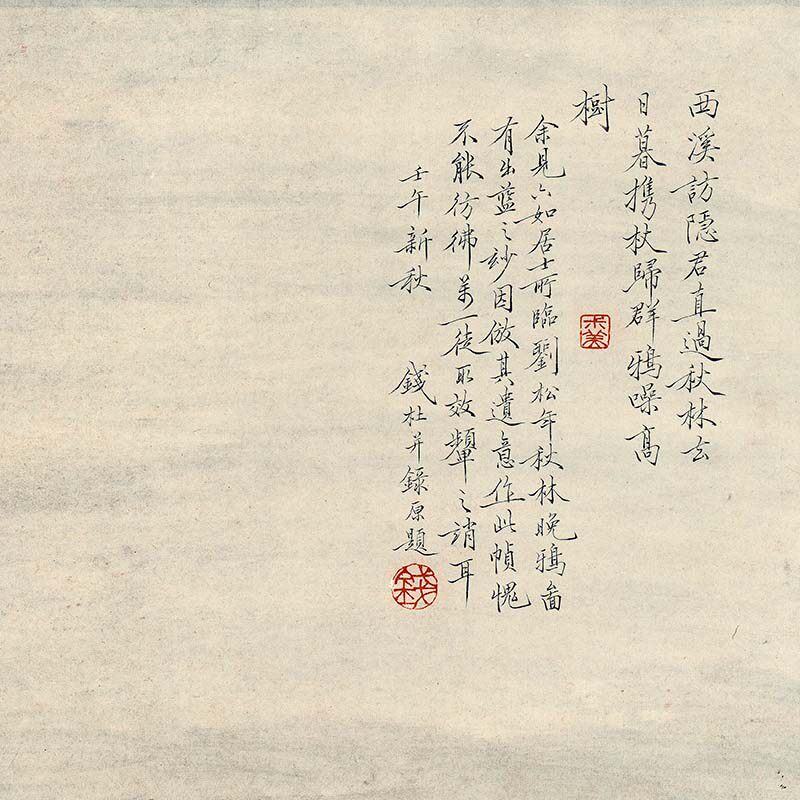 西溪訪隱君直過秋林去
日暮携杖歸群鴉噪高
樹
余見六如居士所臨劉松年秋林晚鴉畫
有出藍之妙因倣其遺意作此幀愧
不能彷彿萬一徒取效顰之誚耳
壬午新秋 錢杜并錄原題